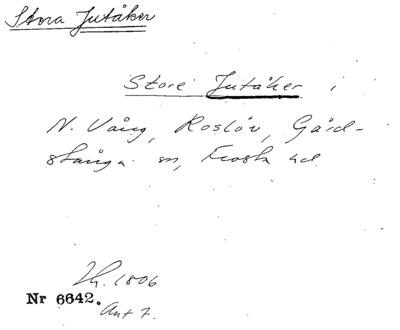 Stora Jutåker
Store Jutåker i
N. Vång, Roslöv, Gård-
stånga sn, Frosta hd
Lh. 1806
Nr 6642.
Akt 7.